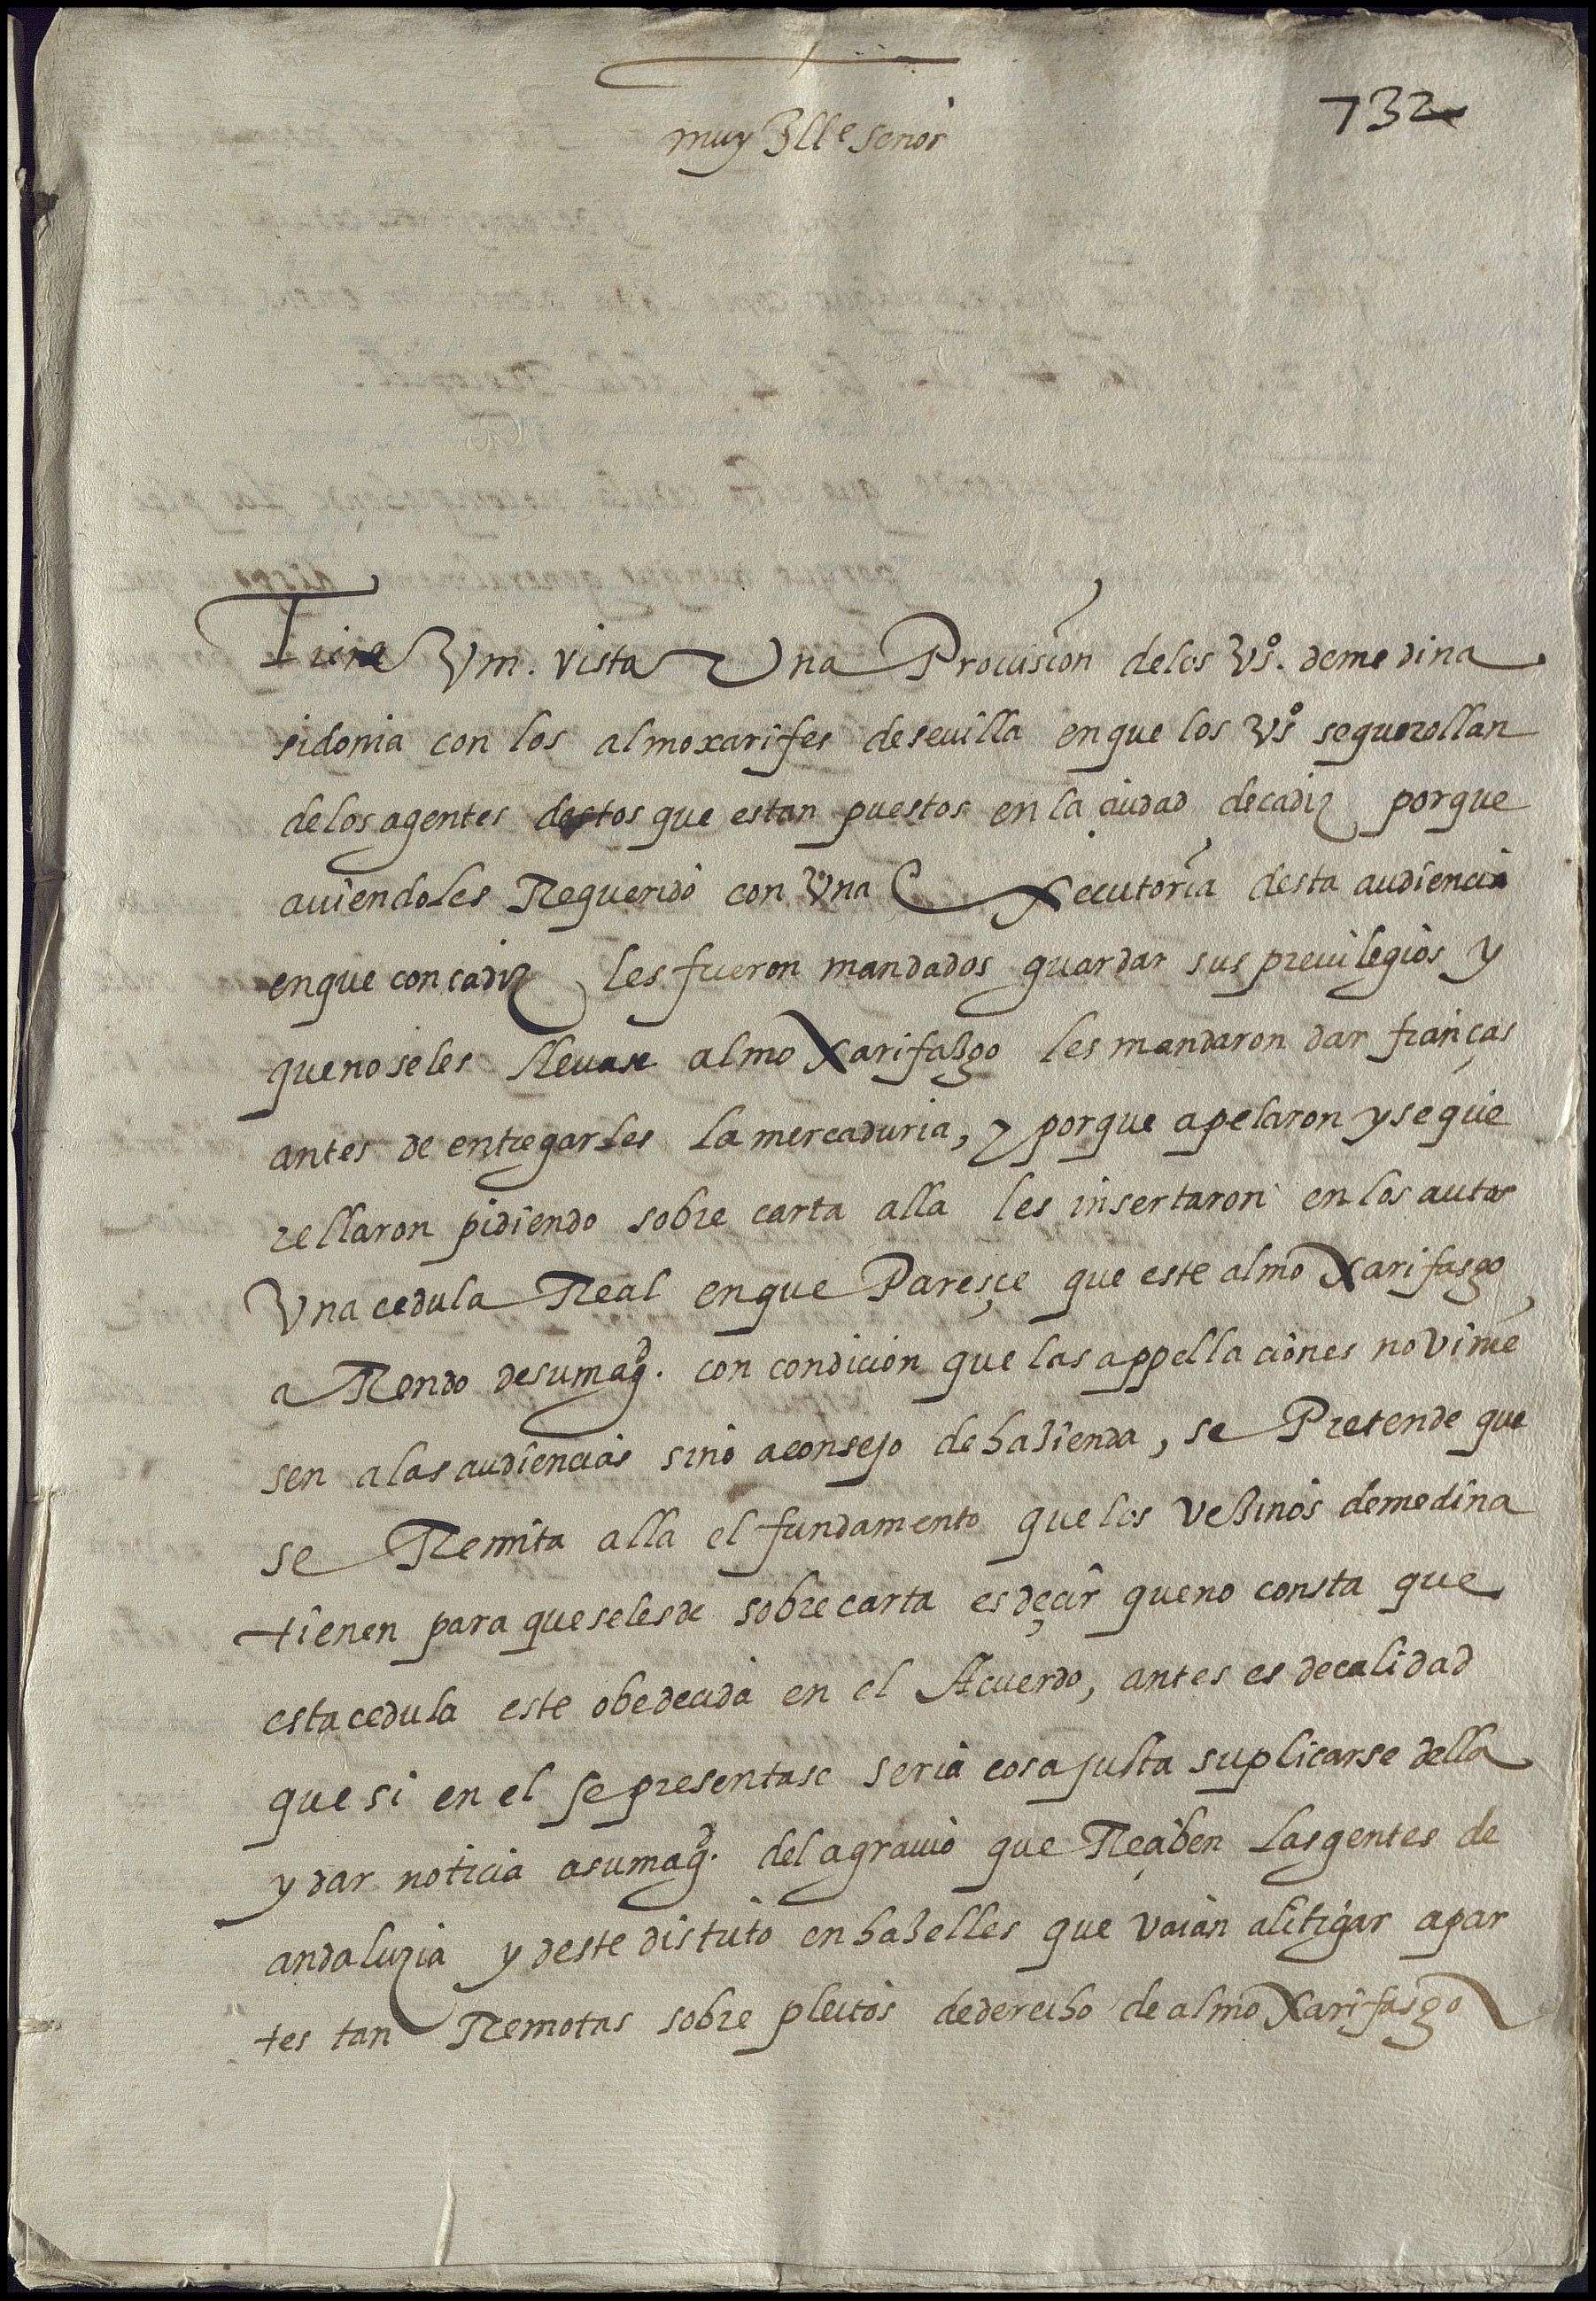 732
muy Ille senor
Tiene Vm. vista Una Prouision de los Vsº. de medina
sidonia con los almoxarifes de seuilla en que los Vsº se querellan
de los agentes destos que estan puestos en la ciudad de cadiz porque
auiendoles Requerido con Una Executoria desta audiencia
en que con cadiz les fueron mandados guardar sus preuilegios y
que no se les lleuase almoXarifazgo les mandaron dar fianças
antes de entregarles la mercaduria, y porque apelaron y se que
rellaron pidiendo sobre carta alla les insertaron en los autos
Una cedula Real en que Paresçe que este almoXarifasgo
a Rendo de su magd. con condicion que las appellaciones no vinie
sen a las audiencias sino a consejo de hazienda, se Pretende que
se Remita alla el fundamento que los vezinos de medina
tienen para que se les de sobre carta es deçir que no consta que
esta cedula este obedecida en el Acuerdo, antes es de calidad
que si en el se presentase seria cosa justa suplicarse della
y dar noticia a su magd. del agrauio que Reçiben las gentes de
andaluzia y deste distrito en hazelles que vaian a litigar a par
tes tan Remotas sobre pleitos de derecho de almoXarifasgo